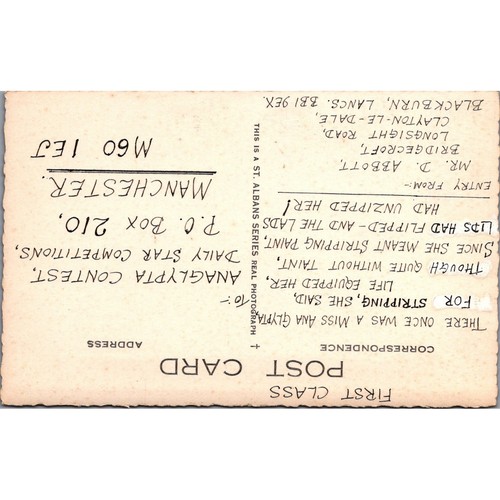 FIRST CLASS
POST CARD
CORRESPONDENCE
ADDRESS
THERE ONCE WAS A MISS ANAGLYPTA
FOR STRIPPING, SHE SAID,
LIFE EQUIPPED HER,
THOUGH QUITE WITHOUT TAINT,
SINCE SHE MEANT STRIPPING PAINT
LIDS HAD FLIPPED - AND THE LADS
HAD UNZIPPED HER!
ENTRY FROM:-
MR. D. ABBOTT,
BRIDGECROFT,
LONGSIGHT ROAD,
CLAYTON-LE-DALE,
BLACKBURN, LANCS. BB1 9EX.
THIS IS A ST. ALBANS SERIES REAL PHOTOGRAPH †
TO:-
ANAGLYPTA CONTEST,
DAILY STAR COMPETITIONS,
P.O. BOX 210,
MANCHESTER.
M60 1EJ